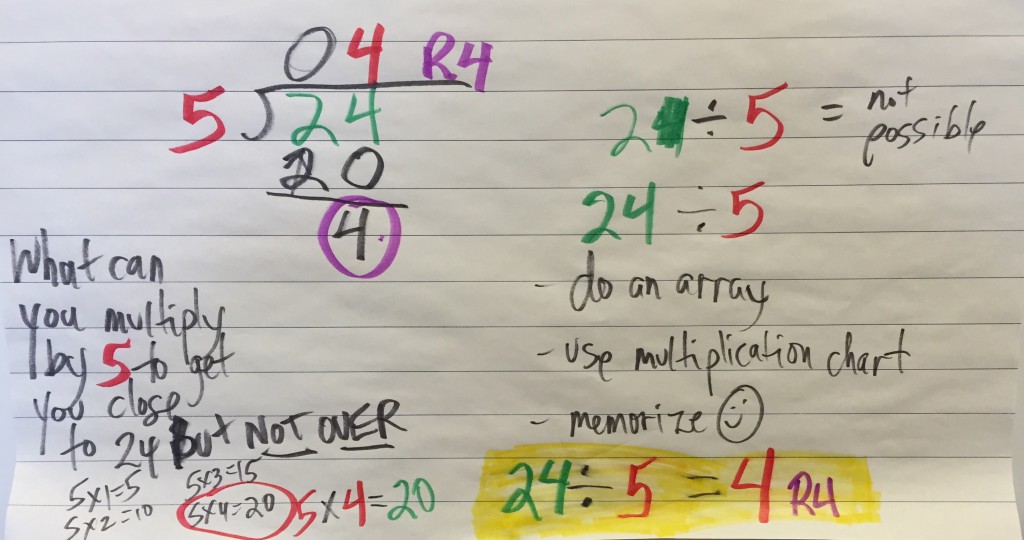 04 R4
5)24
20
4
What can
you multiply
by 5 to get
you close
to 24 But NOT OVER
5x1=5
5x2=10
5x3=15
5x4=20
5x4=20
2 ÷ 5 = not
possible
24 ÷ 5
- do an array
- use multiplication chart
- memorize
24 ÷ 5 = 4 R4